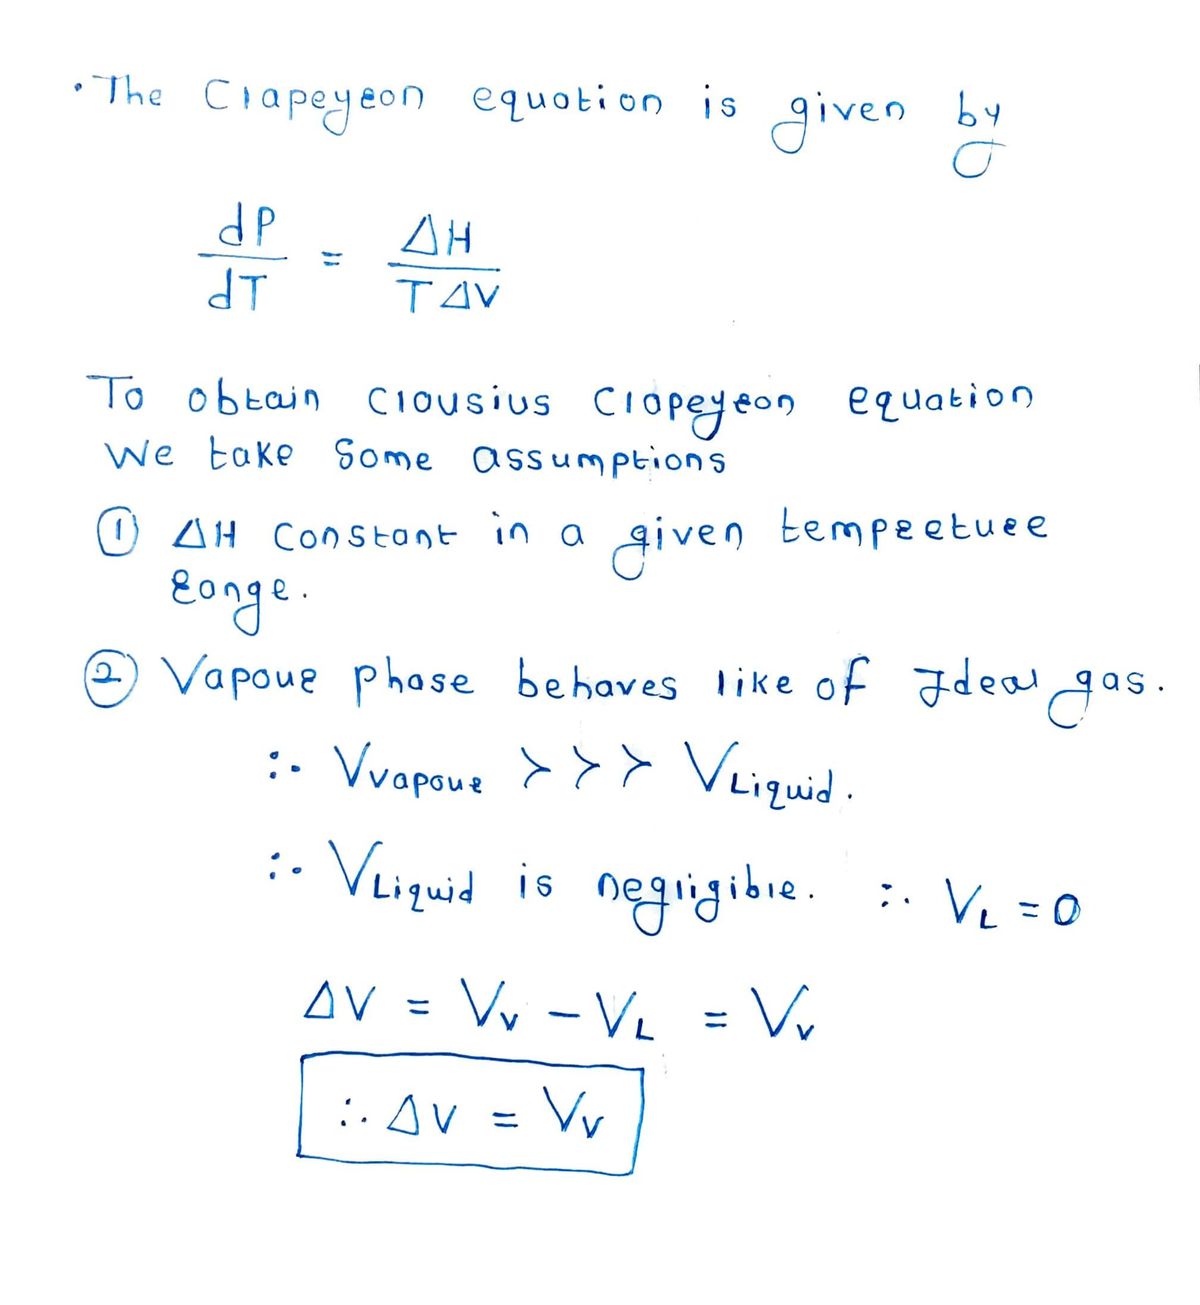 • The Clapeyron equation is given by
dP/dT = ΔH/TΔV
To obtain Clausius Clapeyron equation
We take Some assumptions
① ΔH Constant in a given tempreture
range.
② Vapour phase behaves like of Ideal gas.
∴ Vvapour >>> VLiquid.
∴ VLiquid is negligible. ∴ VL = 0
ΔV = Vv - VL = Vv
∴ ΔV = Vv